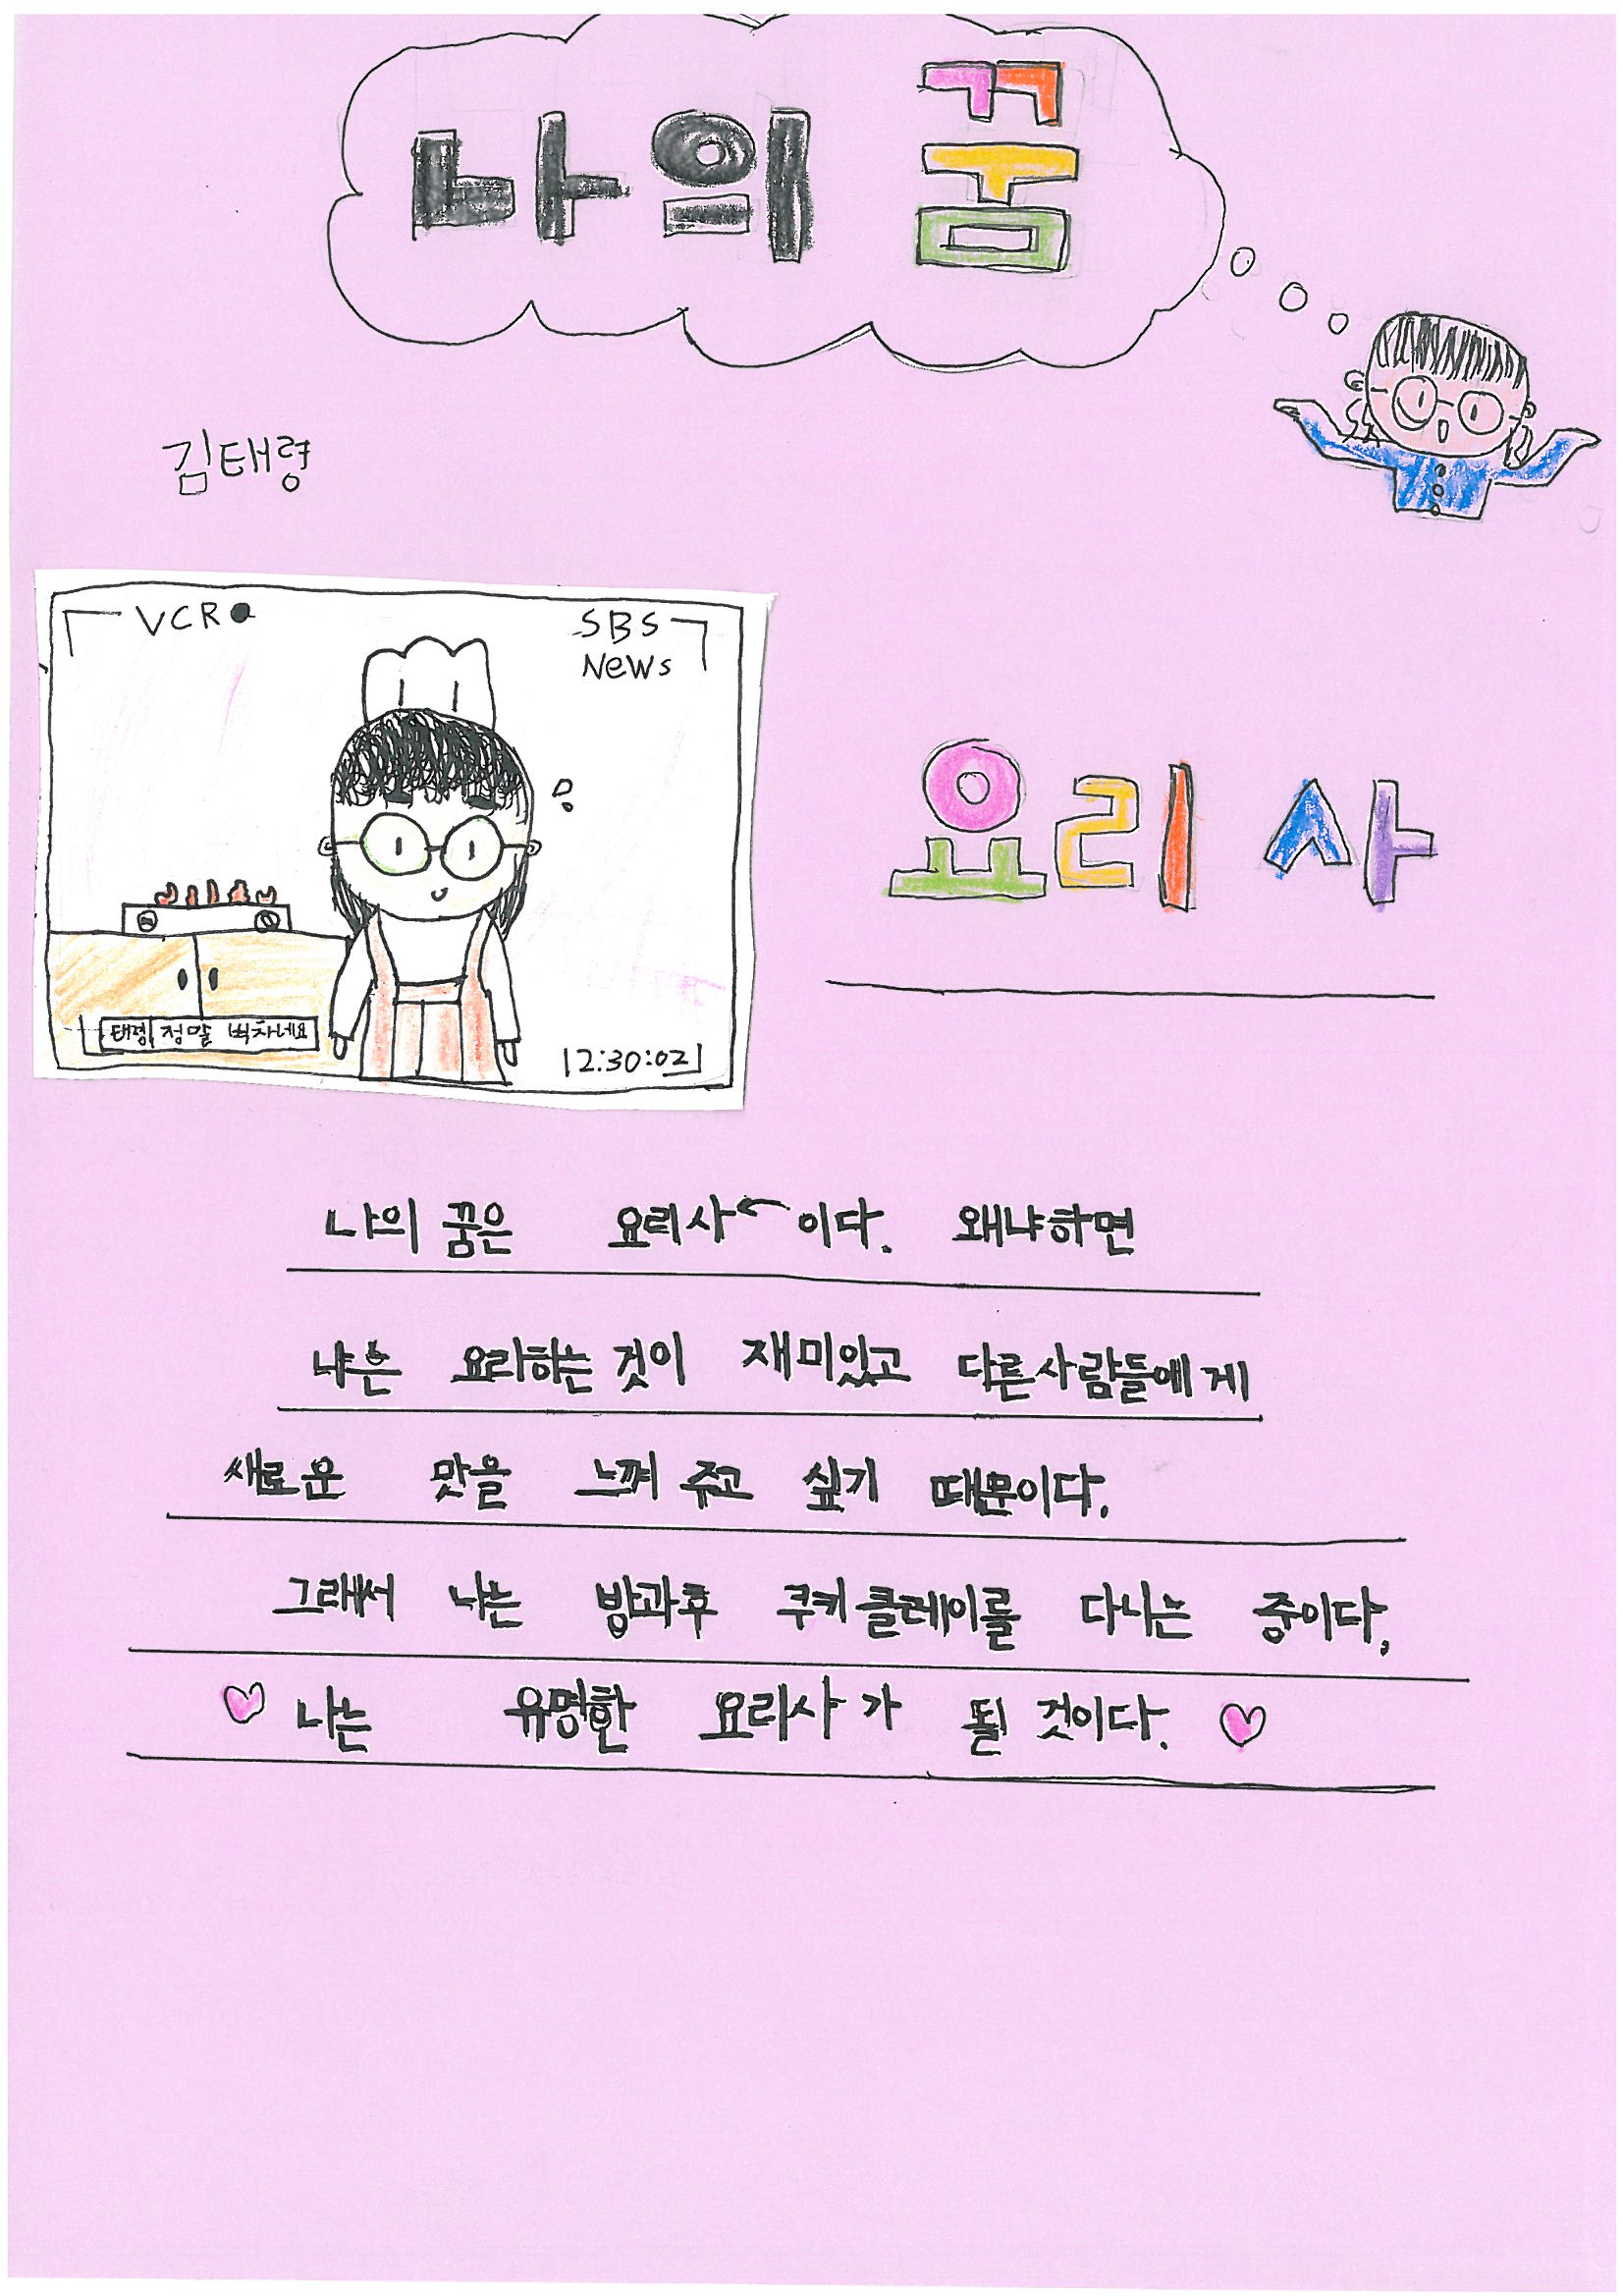 나의 꿈
김태령
VCR
SBS
News
요리사
태령 정말 벅차네요
12:30:02
나의 꿈은 요리사이다. 왜냐하면
나는 요리하는 것이 재미있고 다른사람들에게
새로운 맛을 느껴 주고 싶기 때문이다.
그래서 나는 방과후 쿠키클레이를 다니는 중이다,
나는 유명한 요리사가 될 것이다.